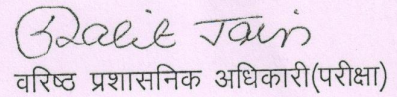 Lalit Jain
वरिष्ठ प्रशासनिक अधिकारी(परीक्षा)